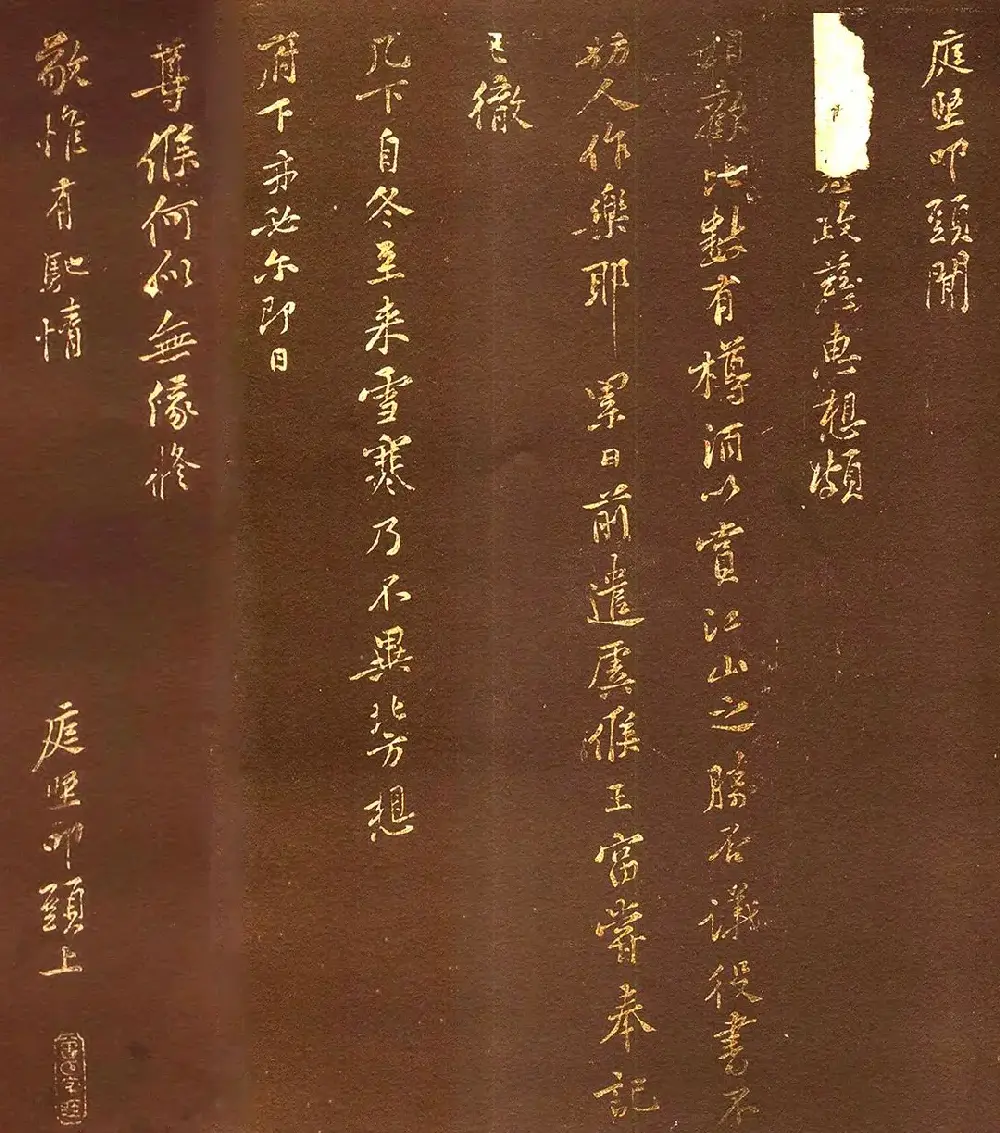 庭堅叩頭聞
政慈惠想頗
歡比數有樽酒以賞江山之勝否議役書不
妨人作樂耶 累日前遣虞候王富嘗奉記
已徹
几下自冬至来雪寒乃不異北方想
府下亦必尔即日
尊候何似無緣修
敬惟有馳情 庭堅叩頭上